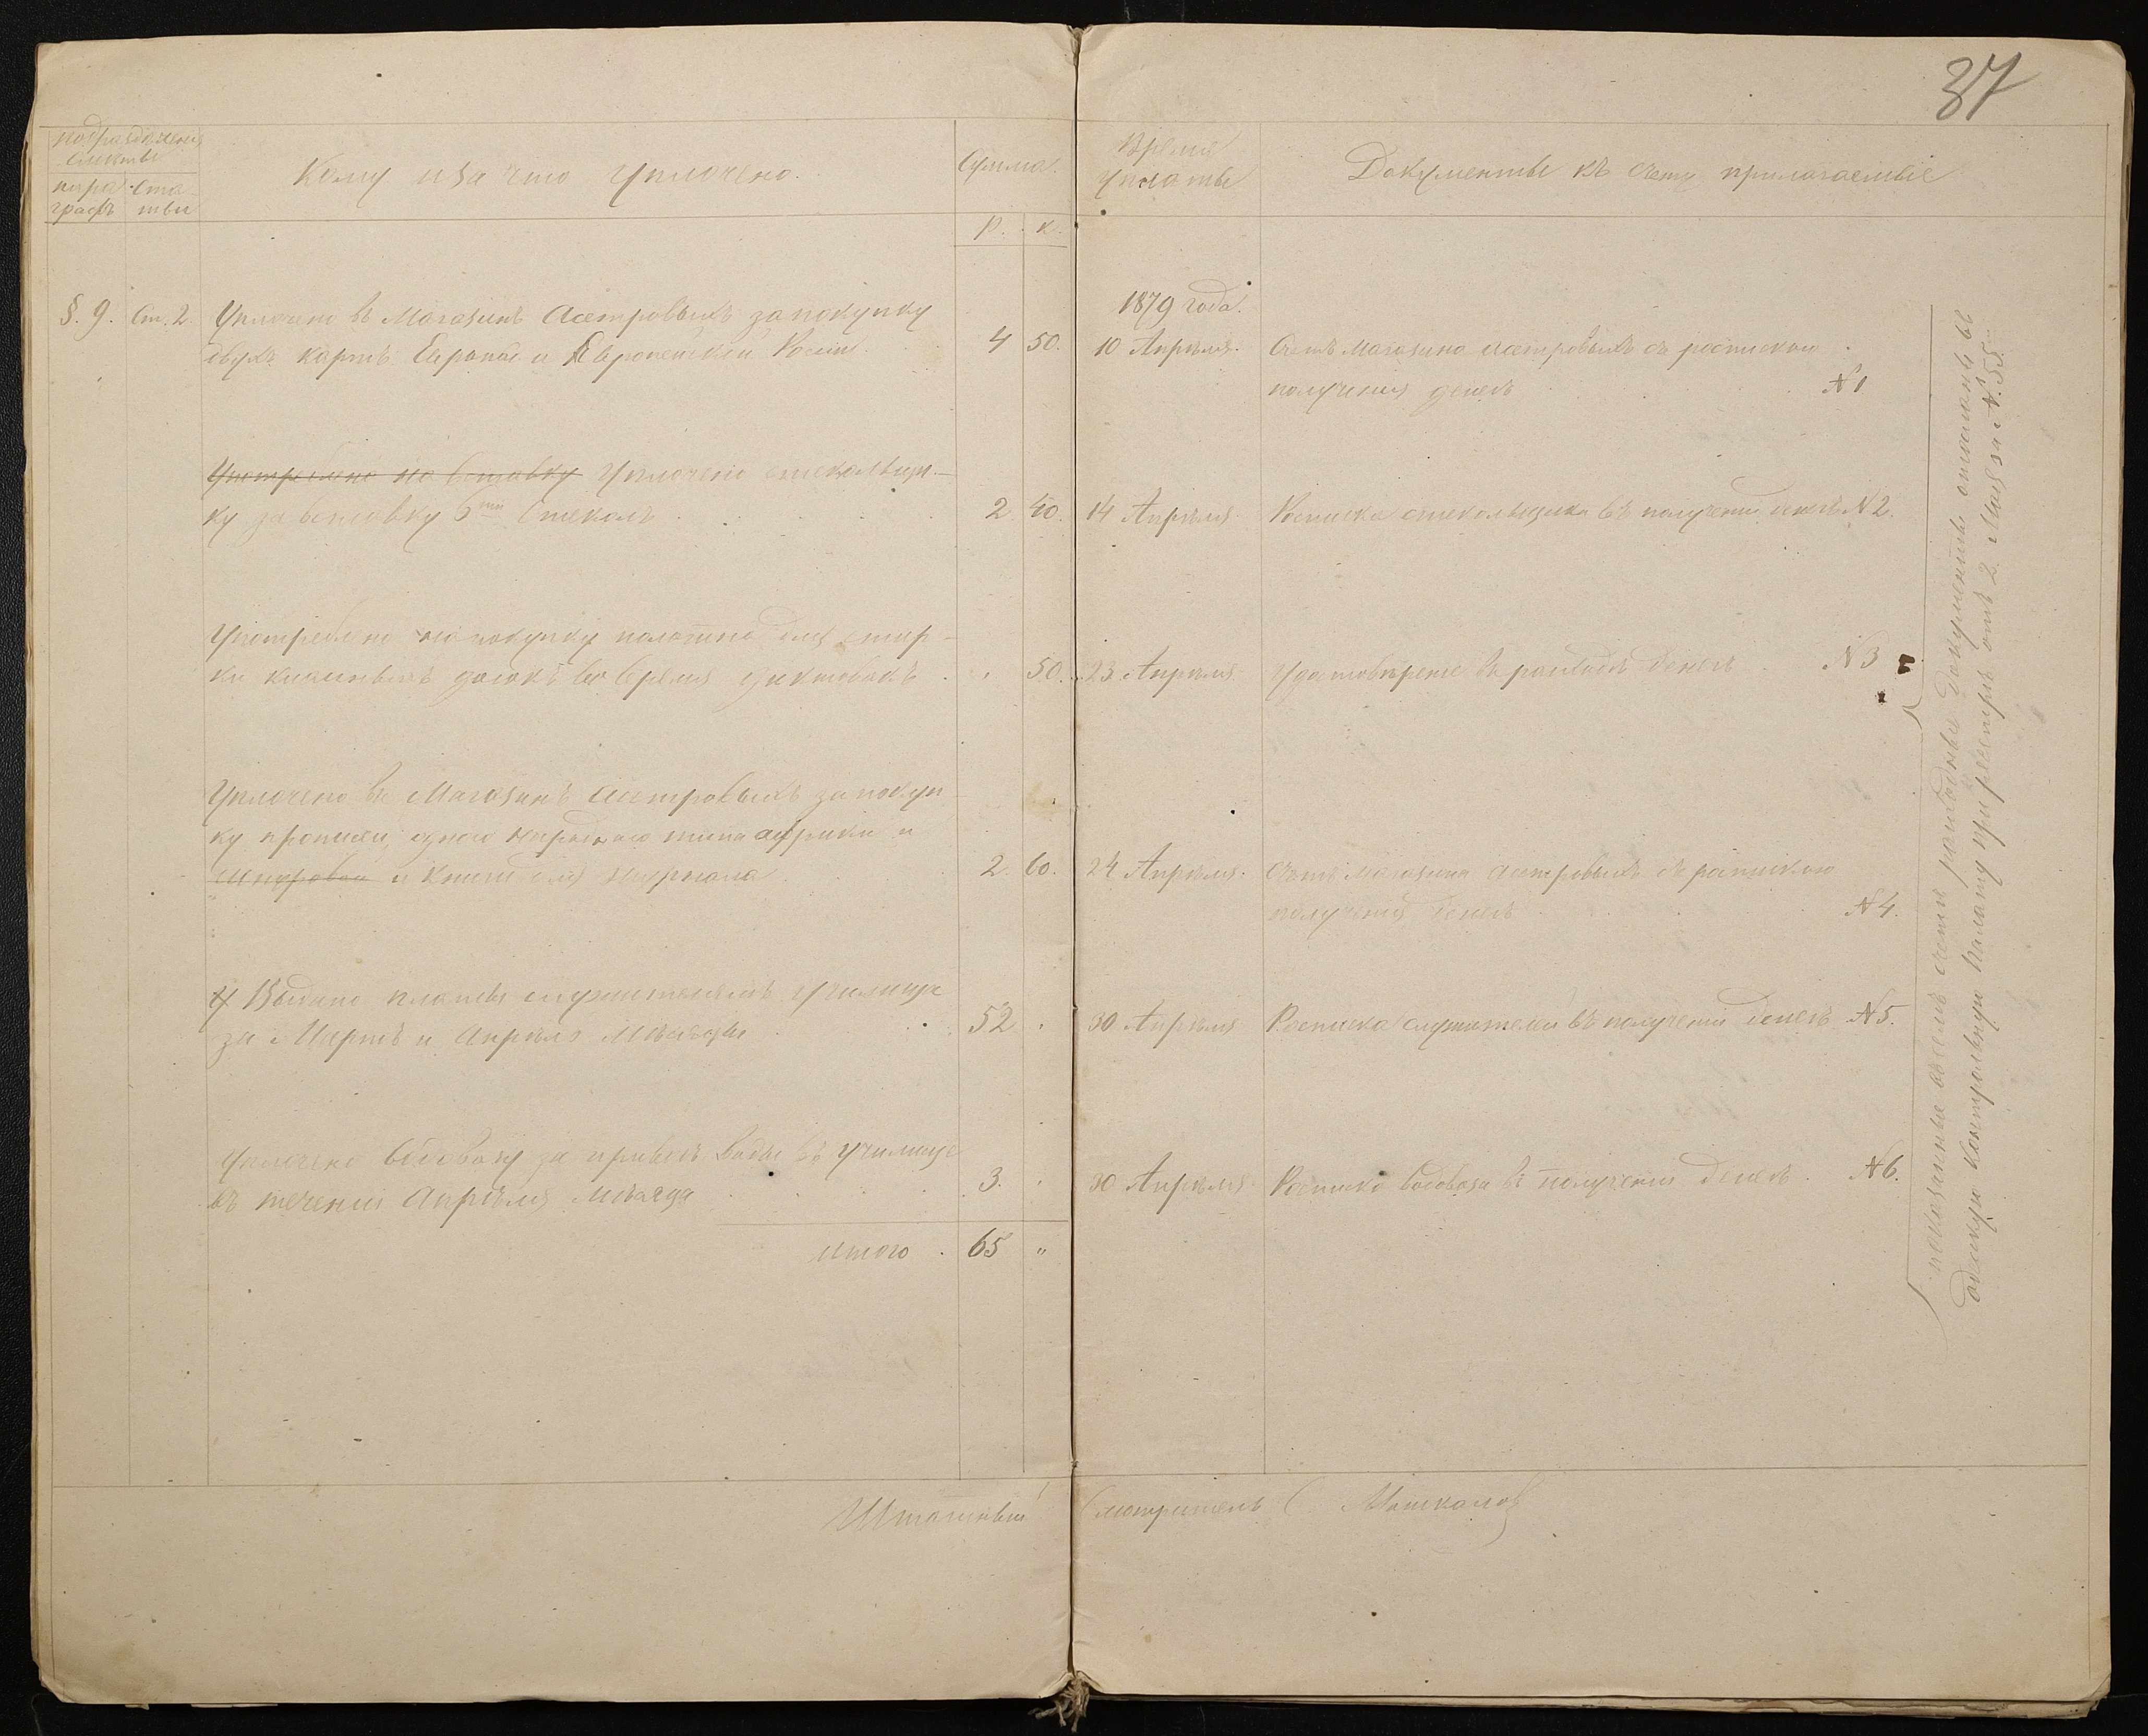 37
подраздѣленiя
смѣты
пара-
графъ
Ста-
тьи
Кому и за что уплочено.
Сумма.
Р. К.
Время
уплаты
Документы къ счету прилагаемые
§. 9. Ст. 2.
Уплочено въ Магазинъ Астровыхъ за покупку
двухъ картъ Европы и Европейской Россiи
4 50.
1879 года.
10 Апрѣля.
Счетъ Магазина Астровыхъ съ роспискою
полученiя денегъ
N 1
Употреблено на вставку Уплочено стекольщи-
ку за вставку 6ти Стеколъ
2 40.
14 Апрѣля
Росписка стекольщика въ полученiи денегъ N 2.
Употреблено на покупку полотна для стир-
ки классныхъ досокъ во время диктовокъ
" 50.
23 Апрѣля
Удостовѣренiе въ расходѣ денегъ
N 3
Уплочено въ Магазинъ Астровыхъ за покуп
ку прописи, одного народнаго типа африки и
и книги для журнала
2. 60.
24 Апрѣля.
Счетъ Магазина Астровыхъ съ роспискою
полученiя денегъ
N 4.
У Выдано платы служителямъ Училища
за Мартъ и Апрѣль Мѣсяцы
52 "
30 Апрѣля
Росписка служителей въ полученiи денегъ N 5.
Уплочено водовозу за привозъ воды въ училище
въ теченiи Апрѣля Мѣсяца
3. "
30 Апрѣля
Росписка водовоза въ полученiи денегъ. N 6.
итого . 65 "
показанные въ семъ счетѣ расходные документы отосланы въ
одесскую Контрольную Палату при реэстрѣ отъ 2. Мая за N. 55.
Штатный Смотритель Машкалов